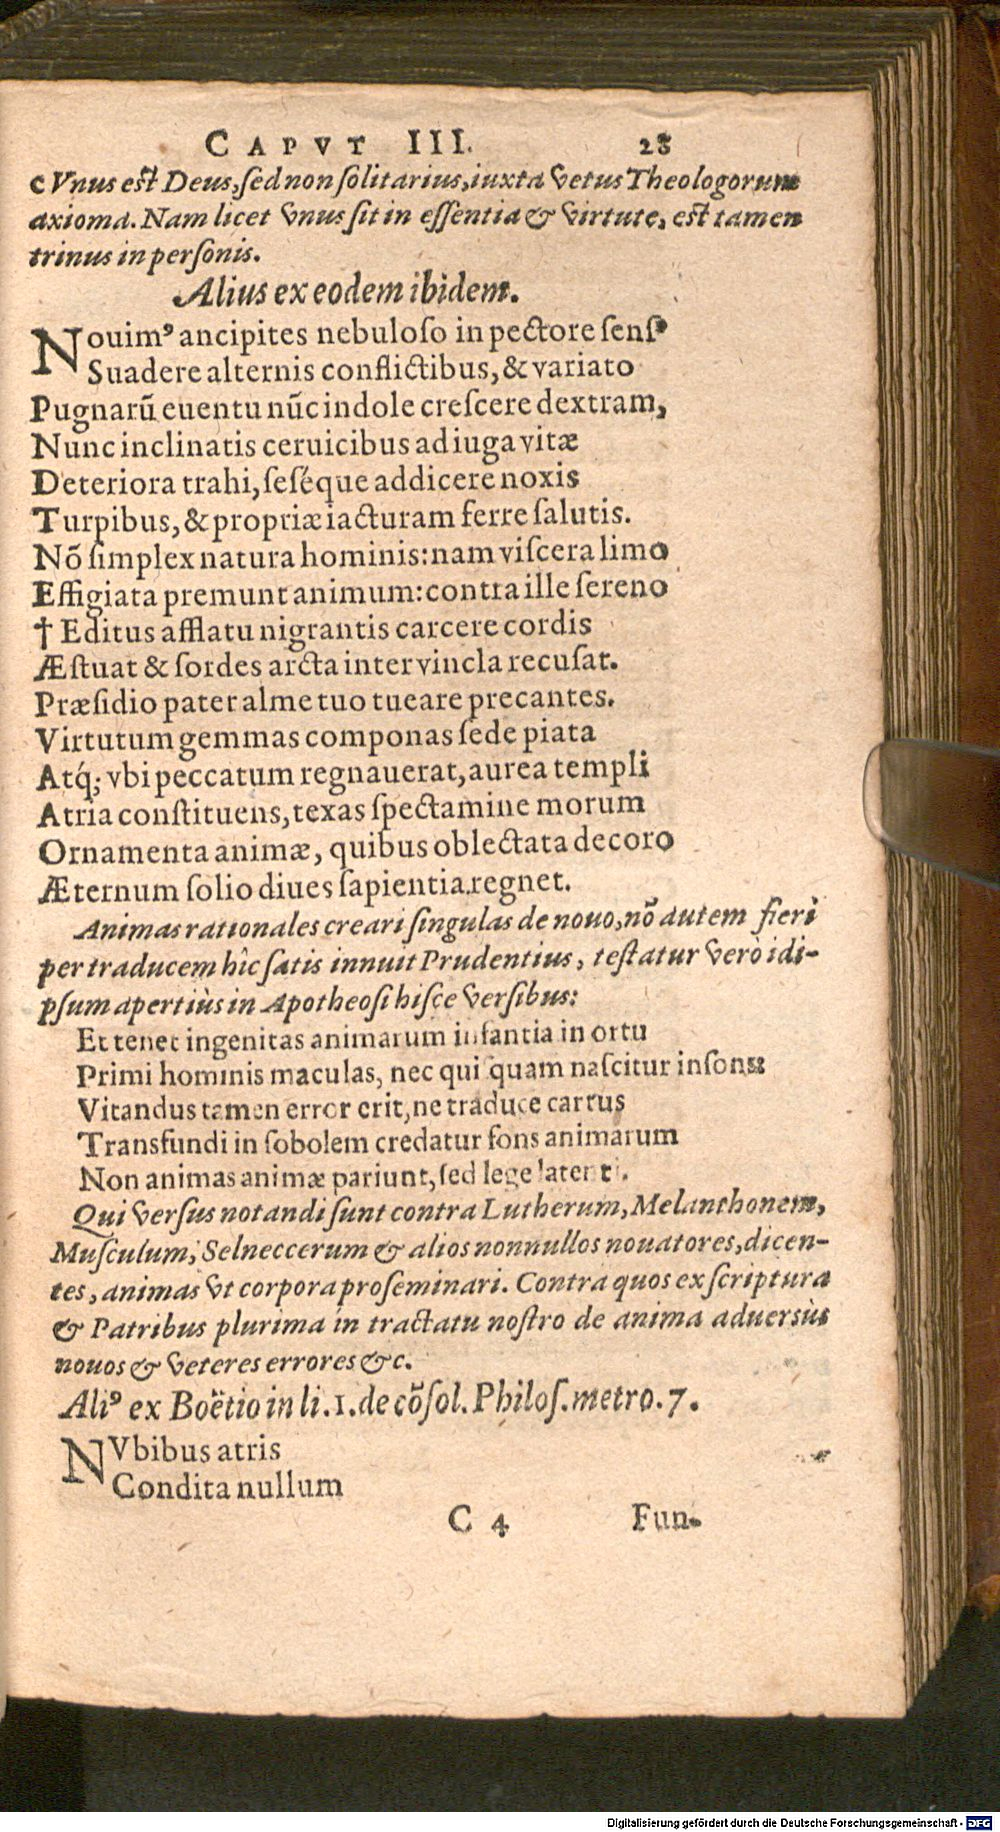 CAPVT III. 28
c Vnus est Deus, sed non solitarius, iuxta vetus Theologorum
axioma. Nam licet vnus sit in essentia & virtute, est tamen
trinus in personis.
Alius ex eodem ibidem.
Nouimꝰ ancipites nebuloso in pectore sensꝰ
Suadere alternis conflictibus, & variato
Pugnarũ euentu nũc indole crescere dextram,
Nunc inclinatis ceruicibus ad iuga vitæ
Deteriora trahi, seséque addicere noxis
Turpibus, & propriæ iacturam ferre salutis.
Nõ simplex natura hominis: nam viscera limo
Effigiata premunt animum: contra ille sereno
† Editus afflatu nigrantis carcere cordis
Æstuat & sordes arcta inter vincla recusat.
Præsidio pater alme tuo tueare precantes.
Virtutum gemmas componas sede piata
Atq́; vbi peccatum regnauerat, aurea templi
Atria constituens, texas spectamine morum
Ornamenta animæ, quibus oblectata decoro
Æternum solio diues sapientia regnet.
Animas rationales creari singulas de nouo, nõ autem fieri
per traducem hîc satis innuit Prudentius, testatur verò idi-
psum apertiùs in Apotheosi hisce versibus:
Et tenet ingenitas animarum infantia in ortu
Primi hominis maculas, nec quisquam nascitur insons:
Vitandus tamen error erit, ne traduce carnis
Transfundi in sobolem credatur fons animarum
Non animas animæ pariunt, sed lege latenti.
Qui versus notandi sunt contra Lutherum, Melanthonem,
Musculum, Selneccerum & alios nonnullos nouatores, dicen-
tes, animas vt corpora proseminari. Contra quos ex scriptura
& Patribus plurima in tractatu nostro de anima aduersùs
nouos & veteres errores &c.
Aliꝰ ex Boëtio in li. 1. de cõsol. Philos. metro. 7.
NVbibus atris
Condita nullum
C 4 Fun-
Digitalisierung gefördert durch die Deutsche Forschungsgemeinschaft - DFG